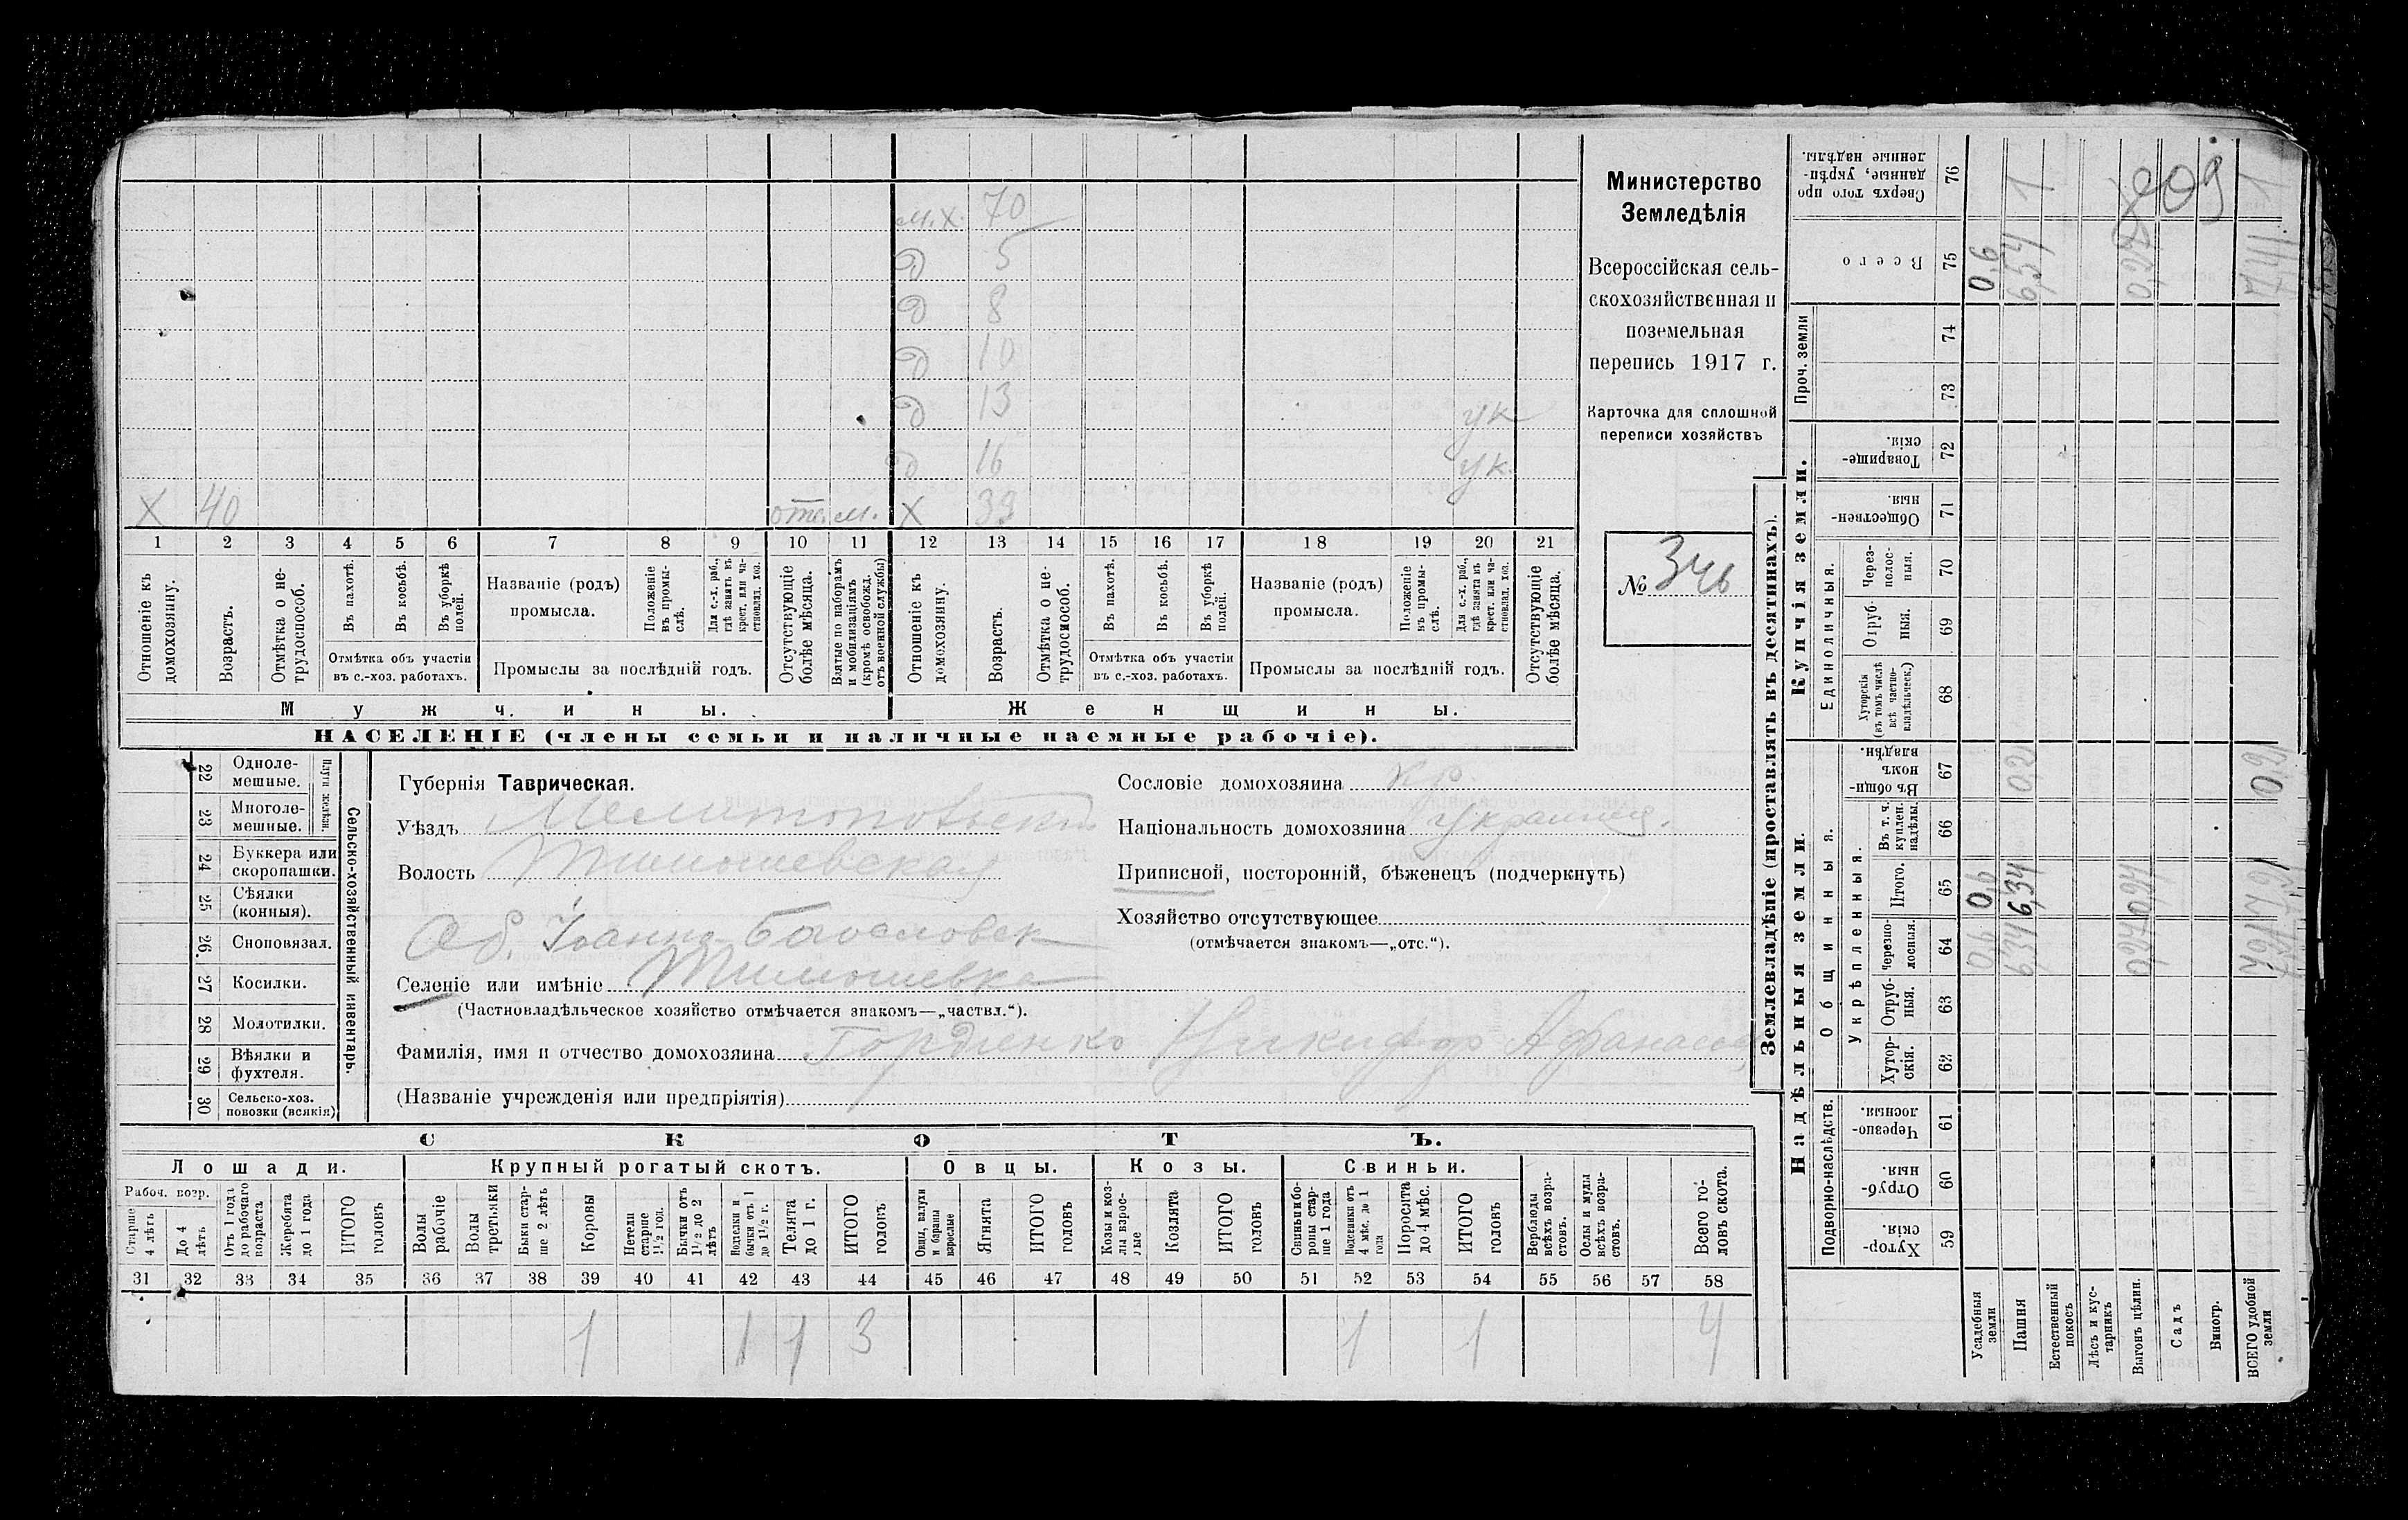 Министерство
Земледѣлія
Всероссійская сель-
скохозяйственная и
поземельная
перепись 1917 г.
Карточка для сплошной
переписи хозяйствъ
№ 346
м.х. 70
д 5
д 8
д 10
д 13 ук
д 16 ук.
х 40 отс. м. х 39
1 2 3 4 5 6 7 8 9 10 11 12 13 14 15 16 17 18 19 20 21
Отношеніе къ домохозяину.
Возрастъ.
Отмѣтка о не-трудоспособ.
Въ пахотѣ.
Въ косьбѣ.
Въ уборкѣ полей.
Отмѣтка объ участіи
въ с.-хоз. работахъ.
Названіе (родъ)
промысла.
Положеніе въ промы-слѣ.
Для с.-х. раб., гдѣ занятъ въ крест. или ча-стновлад. хоз.
Промыслы за послѣдній годъ.
Отсутствующіе болѣе мѣсяца.
Взятые по наборамъ и мобилизаціямъ (кромѣ освобожд. отъ военной службы)
Отношеніе къ домохозяину.
Возрастъ.
Отмѣтка о не-трудоспособ.
Въ пахотѣ.
Въ косьбѣ.
Въ уборкѣ полей.
Отмѣтка объ участіи
въ с.-хоз. работахъ.
Названіе (родъ)
промысла.
Положеніе въ промы-слѣ.
Для с.-х. раб., гдѣ занята въ крест. или ча-стновлад. хоз.
Промыслы за послѣдній годъ.
Отсутствующіе болѣе мѣсяца.
Мужчины.
Женщины.
НАСЕЛЕНІЕ (члены семьи и наличные наемные рабочіе).
22 Одноле-мешные.
23 Многоле-мешные.
Плуги желѣзн.
24 Буккера или скоропашки.
25 Сѣялки (конныя).
26. Сноповязал.
27 Косилки.
28 Молотилки.
29 Вѣялки и фухтеля.
30 Сельско-хоз. повозки (всякія)
Сельско-хозяйственный инвентарь.
Губернія Таврическая.
Уѣздъ Мелитопольскій
Волость Тимошевская
Об. Іоанно-Богословск
Селеніе или имѣніе Тимошевка
(Частновладѣльческое хозяйство отмѣчается знакомъ—„частвл.“).
Фамилія, имя и отчество домохозяина Гордіенко Никифор Афанасьев
(Названіе учрежденія или предпріятія)
Сословіе домохозяина кр.
Національность домохозяина украинец.
Приписной, посторонній, бѣженецъ (подчеркнуть)
Хозяйство отсутствующее
(отмѣчается знакомъ—„отс.“).
СКОТЪ.
Лошади.
Крупный рогатый скотъ.
Овцы.
Козы.
Свиньи.
Рабоч. возр.
Старше 4 лѣтъ
До 4 лѣтъ
Отъ 1 года до рабочаго возраста
Жеребята до 1 года
ИТОГО головъ
Волы рабочіе
Волы третьяки
Быки стар-ше 2 лѣтъ
Коровы
Нетели старше 1½ год.
Бычки отъ 1½ до 2 лѣтъ
Водолки и бычки отъ 1 до 1½ г.
Телята до 1 г.
ИТОГО головъ
Овцы, валухи и бараны взрослые
Ягнята
ИТОГО головъ
Козы и коз-лы взрос-лые
Козлята
ИТОГО головъ
Свиньи и бо-ровы стар-ше 1 года
Подсвинки отъ 4 мѣс. до 1 года
Поросята до 4 мѣс.
ИТОГО головъ
Верблюды всѣхъ возра-стовъ.
Ослы и мулы всѣхъ возра-стовъ.
Всего го-ловъ скота.
31 32 33 34 35 36 37 38 39 40 41 42 43 44 45 46 47 48 49 50 51 52 53 54 55 56 57 58
1 1 1 3 1 1 4
Землевладѣніе (проставлять въ десятинахъ).
Надѣльныя земли.
Купчія земли.
Проч. земли
Подворно-наслѣдств.
Общинныя.
Укрѣпленныя.
Единоличныя.
Хутор-скія.
Отруб-ныя.
Черезпо-лосныя.
Хутор-скія.
Отруб-ныя.
Черезпо-лосныя.
Итого.
Въ т. ч. куплен. надѣлы.
Въ общи-номъ владѣн.
Хуторскія (въ томъ числѣ всѣ частно-владѣльческ.)
Отруб-ныя.
Через-полос-ныя.
Обществен-ныя.
Товарище-скія.
Всего
Сверхъ того про-данные, укрѣп-ленные надѣлы.
59 60 61 62 63 64 65 66 67 68 69 70 71 72 73 74 75 76
Усадебныя земли 0,6 0,6 0,6
Пашня 6,34 6,34 0,2 6,54 1
Естественный покосъ
Лѣсъ и кус-тарникъ
Выгонъ цѣлин.
Садъ
Виногр.
ВСЕГО удобной земли
209